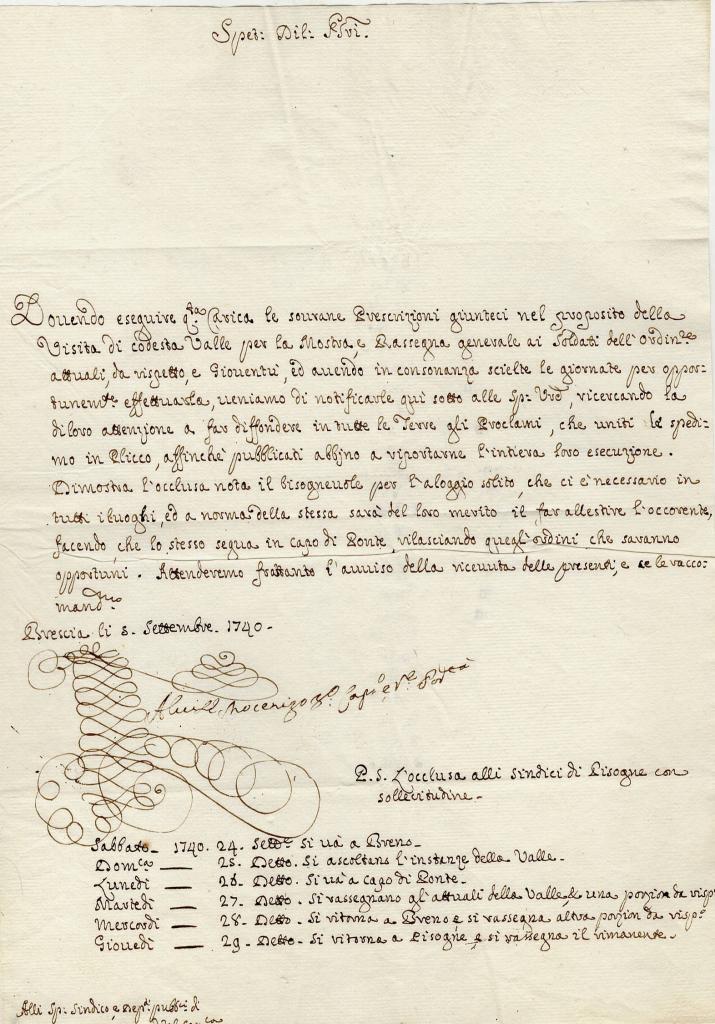 Spet: Dil: Pssmi.
Douendo eseguire q.ta Carica le sourane Prescrizioni giunteci nel proposito della
Visita di codesta Valle per la Mostra, e Rassegna generale ai Soldati dell'Ordin.ze
attuali, da rispetto, e Giouentu', ed auendo in consonanza scielte le giornate per oppor:
tunem.te effettuarla, ueniamo di notificarle qui sotto alle Sp: Vrē, ricercando la
di loro attenzione a far diffondere in tutte le Terre gli Proclami, che uniti le spedi:
mo in Plicco, affinche' pubblicati abbino a riportarne l'intiera loro esecuzione.
Dimostra l'occlusa nota il bisogneuole per l'aloggio solito, che ci è necessario in
tutti i luoghi, ed a norma della stessa sarà del loro merito il far allestire l'occorente,
facendo che lo stesso segua in capo di Ponte, rilasciando quegl'ordini che saranno
opportuni. Attenderemo frattanto l'auuiso della riceuuta delle presenti, e se le racco:
mand.mo
Brescia li 5. Settembre. 1740.
Aluise Mocenigo 3.o Cap.o e V.e Pod.tà
P.S. L'occlusa alli Sindici di Pisogne con
sollecitudine.
Sabbato — 1740. 24. Sett.e Si uà a Breno.
Dom.ca — 25. Detto. Si ascoltano l'instanze della Valle.
Lunedi — 26. Detto. Si uà a capo di Ponte.
Martedi — 27. Detto. Si rassegnano gl'attuali della Valle, & una porzion da risp
Mercordi — 28. Detto. Si ritorna a Breno e si rassegna altra porzion da risp.o
Giouedi — 29. Detto. Si ritorna a Pisogne e si rassegna il rimanente.
Alli Sp: Sindico, e Dep.ti pubb.ci di